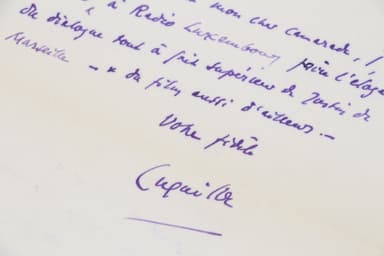 mon cher camarade, j
à Radio Luxembourg faire l'éloge
du dialogue tout à fait supérieur de Justin de
Marseille — * du film aussi d'ailleurs —
Votre fidèle